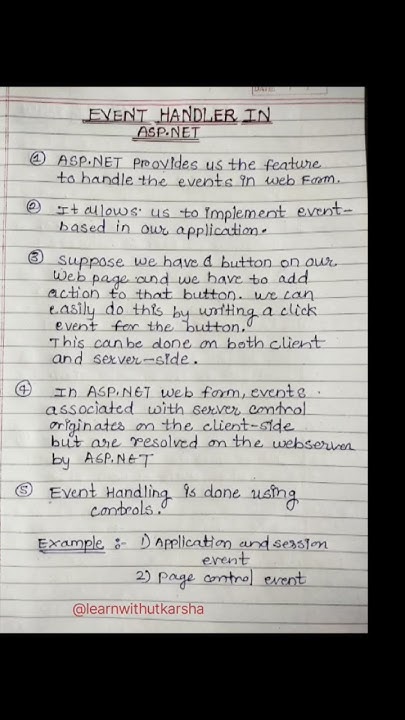 DATE: / /
EVENT HANDLER IN
ASP.NET
① ASP.NET provides us the feature
to handle the events in web Form.
② It allows us to implement event-
based in our application.
③ Suppose we have a button on our
web page and we have to add
action to that button. we can
easily do this by writing a click
event for the button.
This can be done on both client
and server-side.
④ In ASP.NET web form, events
associated with server control
originates on the client-side
but are resolved on the webserver
by ASP.NET
⑤ Event Handling is done using
controls.
Example :- 1) Application and session
event
2) Page control event
@learnwithutkarsha